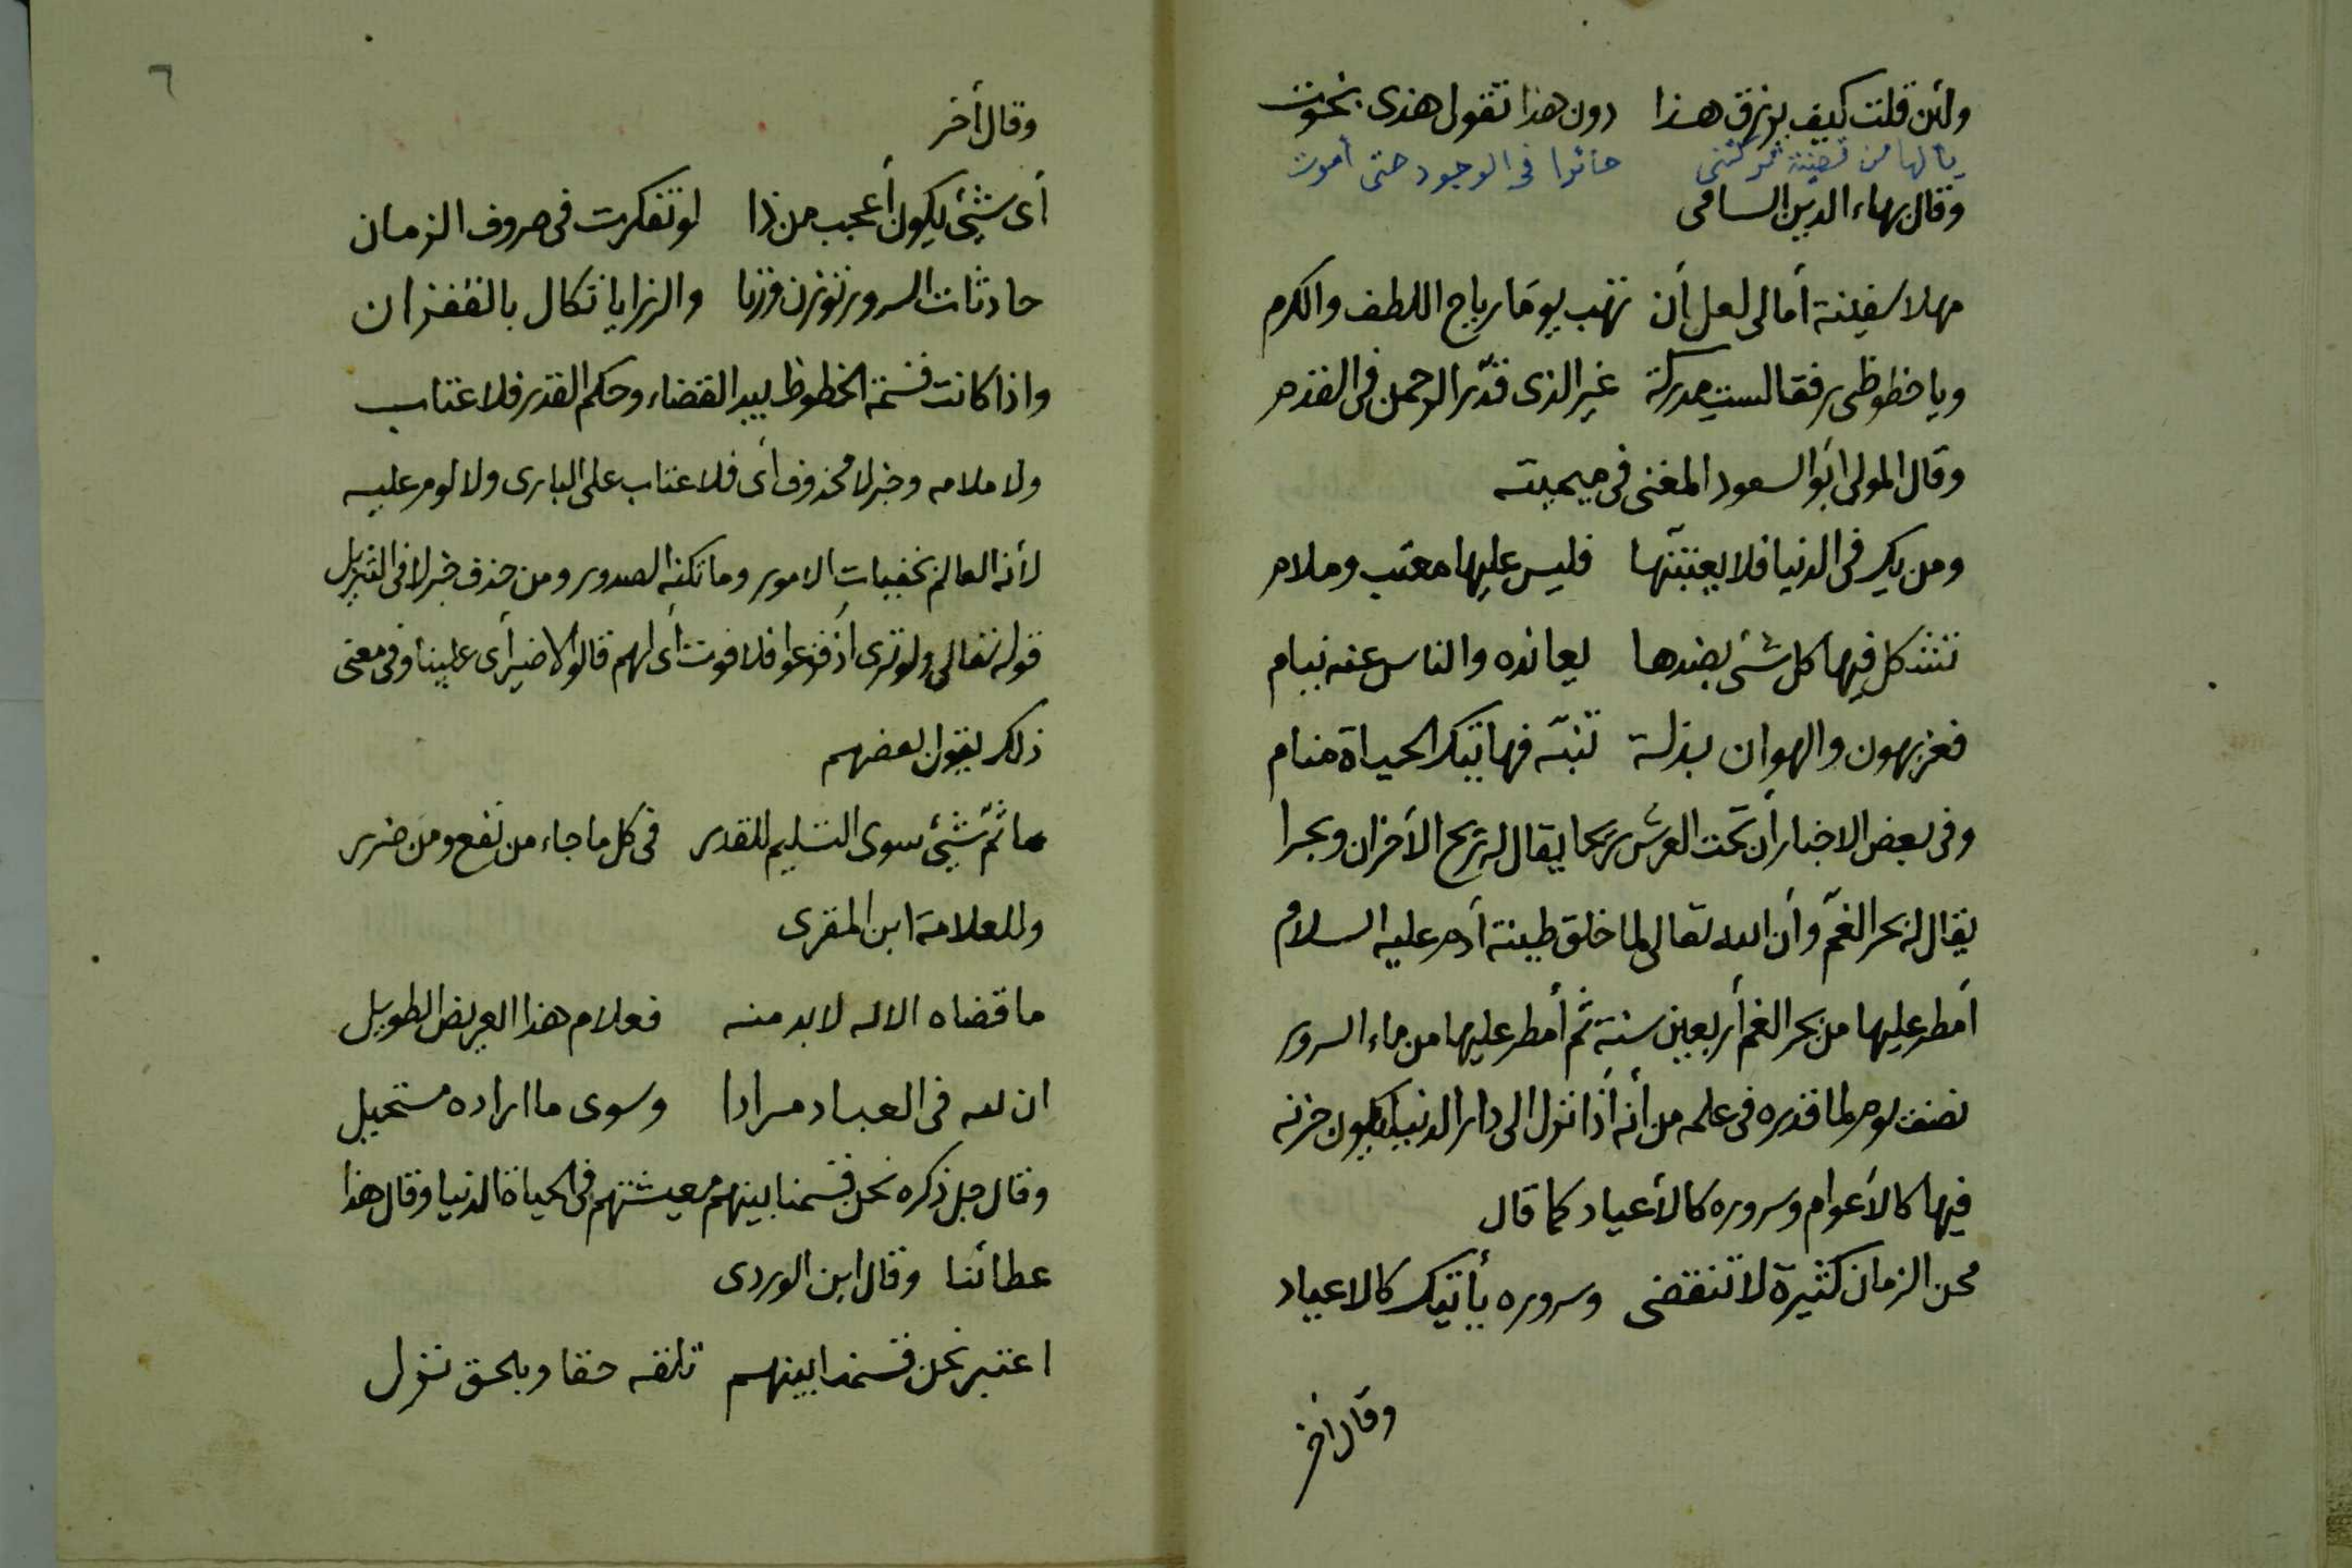 ولئن قلت كيف يرزق هذا دون هذا تقول هذى بخوت
يا لها من قضية تركتنى حائرا فى الوجود حتى أموت
وقال بهاء الدين السامى
مهلا سفينة أمالى لعل أن تهب يوما رياح اللطف والكرم
ويا حظوظى رفقا لست مدركة غير الذى قدّر الرحمن فى القدم
وقال المولى أبو السعود المغنى فى ميميته
ومن يك فى الدنيا فلا يعتبنّها فليس عليها معتب وملام
تشكل فيها كل شئ بضدها يعانده والناس عنه نيام
فعز بهون والهوان بذلة تنبّه فهاتيك الحياة منام
وفى بعض الاخبار أن تحت العرش ريحا يقال له ريح الأحزان وبحرا
يقال له بحر الغمّ وأن الله تعالى لما خلق طينة أدم عليه السلام
أمطر عليها من بحر الغم أربعين سنة ثم أمطر عليها من ماء السرور
نصف يوم لما قدره فى علمه من أنه أذا نزل الى دار الدنيا يكون حزنه
فيها كالأعوام وسروره كالأعياد كما قال
محن الزمان كثيرة لا تنقضى وسروره يأتيك كالاعياد
وقال أخر
٦
وقال أخر
أى شئ يكون أعجب من ذا لو تفكرت فى صروف الزمان
حادثات السرور توزن وزنا والرزايا تكال بالقفزان
واذا كانت قسمة الحظوظ بيد القضاء وحكم القدر فلا عتاب
ولا ملامه وخبر لا محذوف أى فلا عتاب على البارى ولا لوم عليه
لأنه العالم بخفيات الامور وما تكنه الصدور ومن حذف خبر لا فى التنزيل
قوله تعالى ولو ترى أذ فزعوا فلا فوت أى لهم قالوا لا ضير أى علينا وفى معنى
ذلك يقول بعضهم
ما ثمّ شئ سوى التسليم للقدر فى كل ما جاء من نفع ومن ضرر
وللعلامة ابن المقرى
ما قضاه الاله لا بد منه فعلام هذا العريض الطويل
ان لله فى العباد مرادا وسوى ما اراده مستحيل
وقال جل ذكره نحن قسمنا بينهم معيشتهم فى الحياة الدنيا وقال هذا
عطائنا وقال ابن الوردى
اعتبر نحن قسمنا بينهم تلقه حقا وبالحق نزل